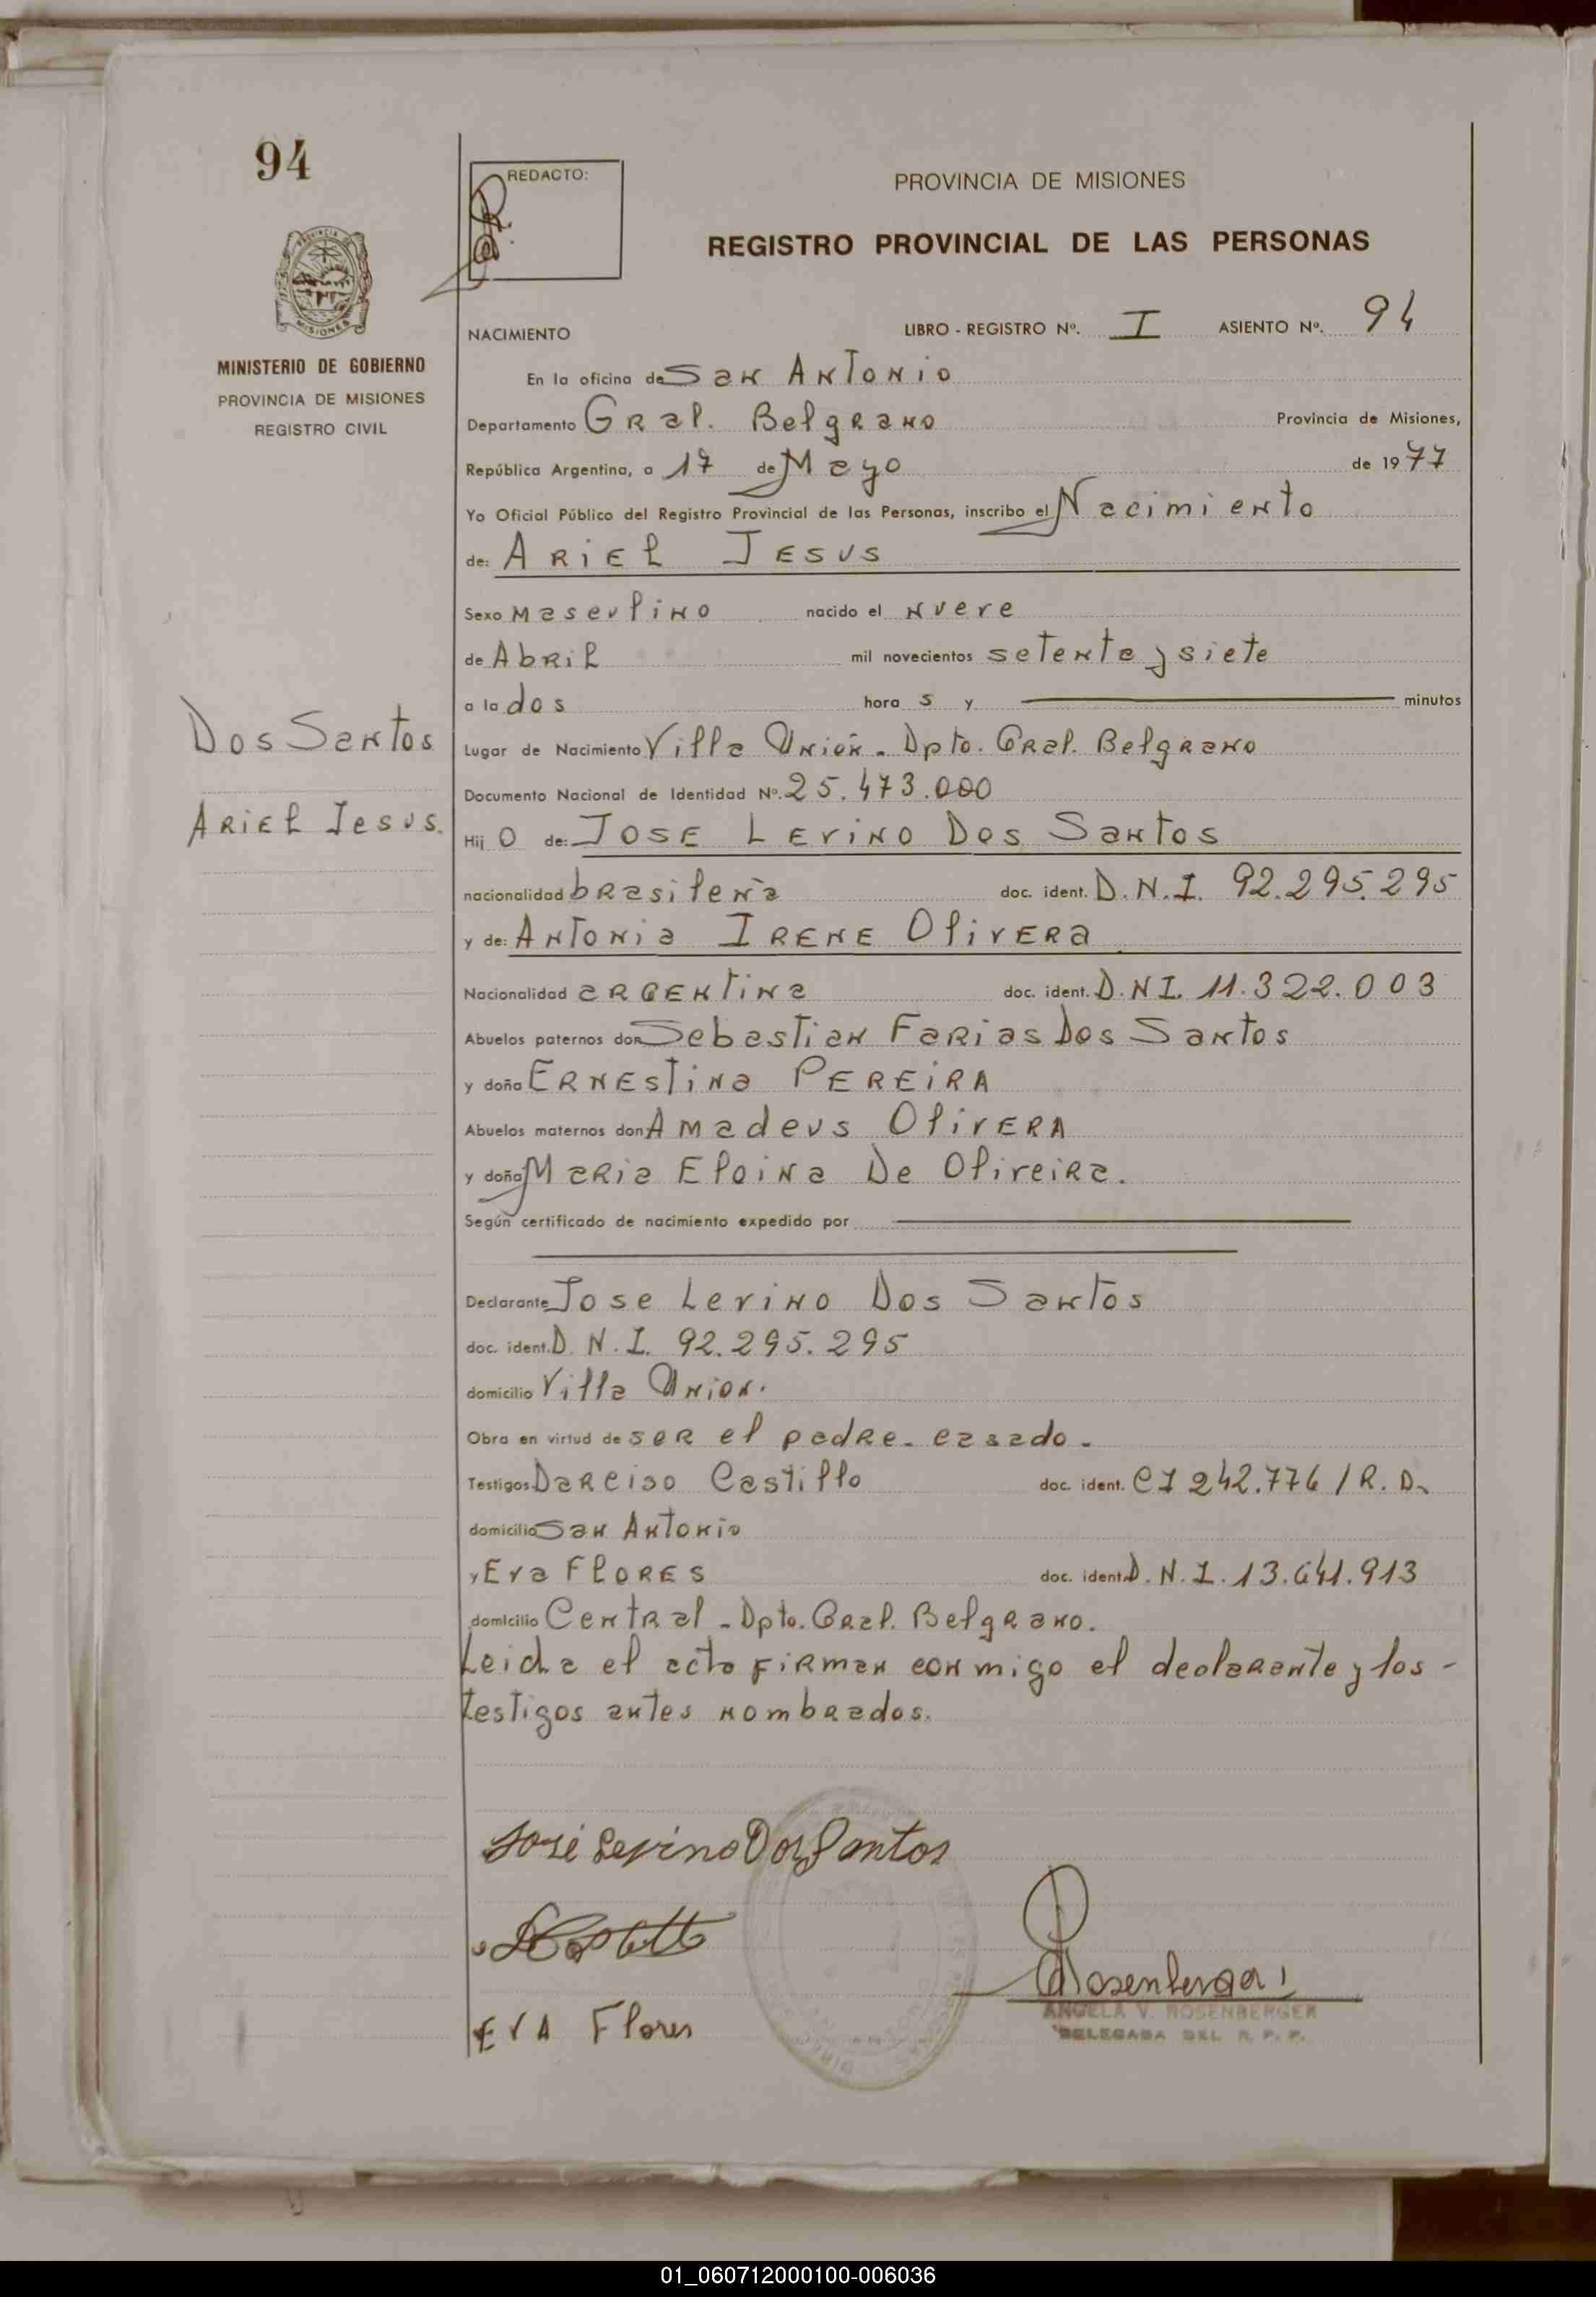 94
REDACTO:
PROVINCIA DE MISIONES
REGISTRO PROVINCIAL DE LAS PERSONAS
MINISTERIO DE GOBIERNO
PROVINCIA DE MISIONES
REGISTRO CIVIL
NACIMIENTO LIBRO - REGISTRO Nº. I ASIENTO Nº. 94
En la oficina de San Antonio
Departamento Gral. Belgrano Provincia de Misiones,
República Argentina, a 17 de Mayo de 1977
Yo Oficial Público del Registro Provincial de las Personas, inscribo el Nacimiento
de: ARIEL JESUS
Sexo masculino nacido el nueve
de Abril mil novecientos setenta y siete
a la dos hora s y minutos
Dos Santos
Ariel Jesus.
Lugar de Nacimiento Villa Unión - Dpto. Gral. Belgrano
Documento Nacional de Identidad Nº. 25.473.000
Hij o de: JOSE LEVINO Dos Santos
nacionalidad brasileña doc. ident. D.N.I. 92.295.295
y de: Antonia IRENE OliVERA
Nacionalidad argentina doc. ident. D.N.I. 11.322.003
Abuelos paternos don Sebastian Farias Dos Santos
y doña Ernestina PEREIRA
Abuelos maternos don Amadeus OliVERA
y doña Maria Eloina De Oliveira.
Según certificado de nacimiento expedido por
Declarante Jose Levino Dos Santos
doc. ident. D.N.I. 92.295.295
domicilio Villa Union.
Obra en virtud de ser el padre - casado -
Testigos Darciso Castillo doc. ident. CI 242.776 / R.D.
domicilio San Antonio
y Eva FLORES doc. ident. D.N.I. 13.641.913
domicilio Central - Dpto. Gral. Belgrano.
Leida el acta firman conmigo el declarante y los -
testigos antes nombrados.
José Levino Dos Santos
EVA Flores
ANGELA V. ROSENBERGER
DELEGADA DEL R. P. P.
01_060712000100-006036